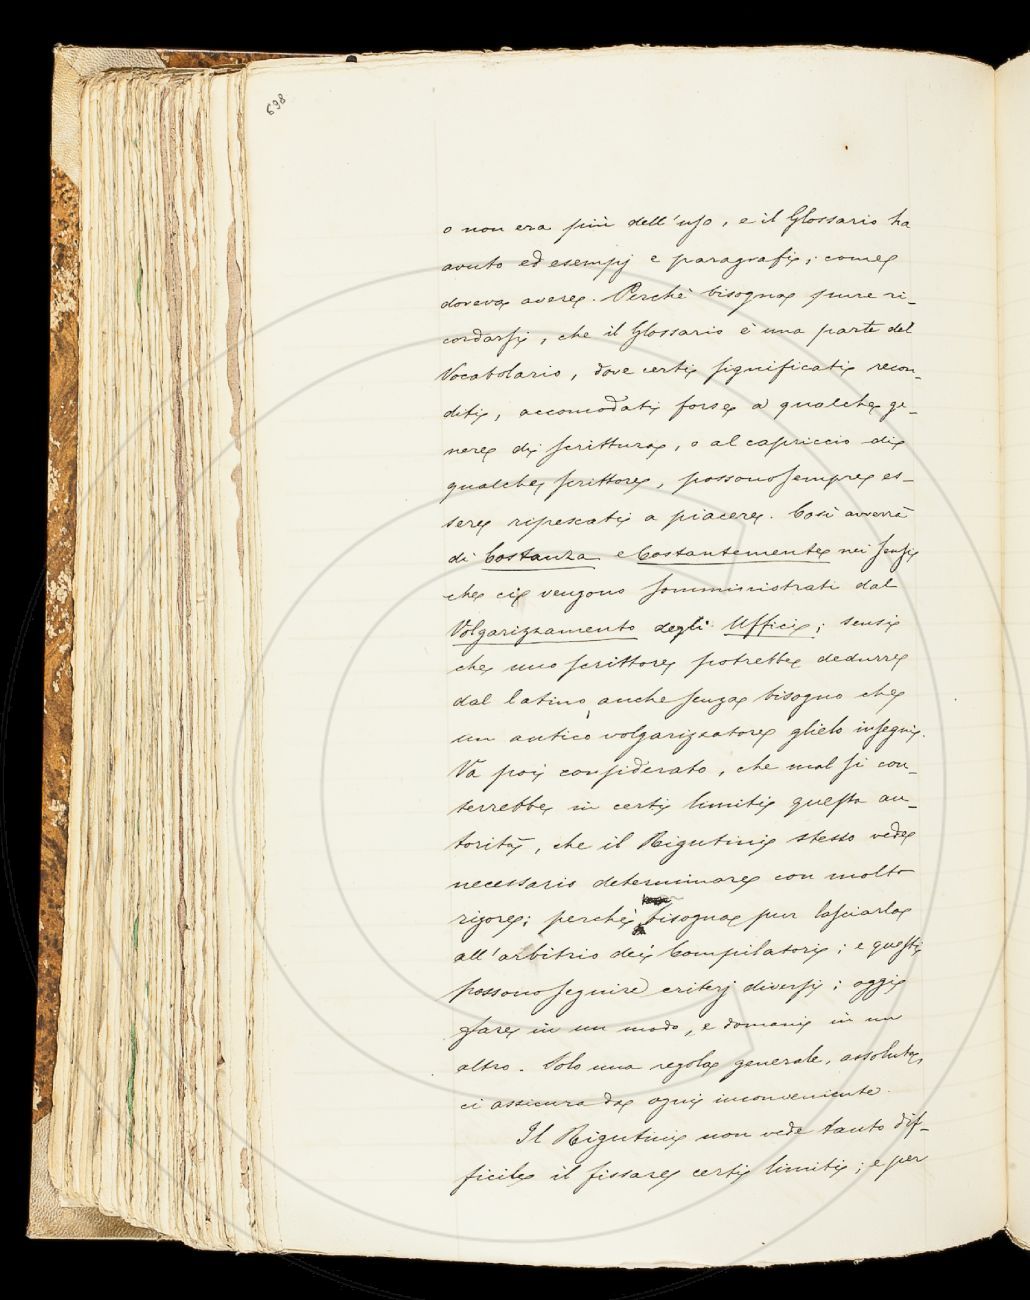 698
o non era più dell'uso, e il Glossario ha
avuto ed esempj e paragrafi; come
doveva avere. Perchè bisogna pure ri-
cordarsi, che il Glossario è una parte del
Vocabolario, dove certi significati recon-
diti, accomodati forse a qualche ge-
nere di scrittura, o al capriccio di
qualche scrittore, possono sempre es-
sere ripescati a piacere. Così avverrà
di Costanza e Costantemente nei sensi
che ci vengono somministrati dal
Volgarizzamento degli Uffici; sensi
che uno scrittore potrebbe dedurre
dal latino, anche senza bisogno che
un antico volgarizzatore glielo insegni.
Va poi considerato, che mal si con-
terrebbe in certi limiti questa au-
torità, che il Rigutini stesso vede
necessario determinare con molto
rigore; perchè bisogna pur lasciarla
all'arbitrio dei Compilatori; e questi
possono seguire criterj diversi; oggi
fare in un modo, e domani in un
altro. Solo una regola generale, assoluta,
ci assicura da ogni inconveniente.
Il Rigutini non vede tanto dif-
ficile il fissare certi limiti; e per